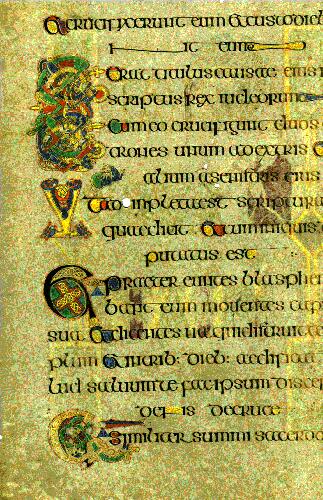 Et crucifixerunt eum et custodieb
it eum
Et erat titulus causae eius
scriptus rex iudeorum
Et cum eo crucifigunt duos
trones unum a dextris et
alium a sinistris eius
Et adimpleta est scriptura
quae dicit Et cum iniquis
putatus est
Et praeter euntes blasphe
bant eum mouentes cap
sua Et dicentes ua qui distruit te
plum Et in trib: dieb: aedificat
saluum te fac ipsum discen
de cruce
Similiter summi sacerdo